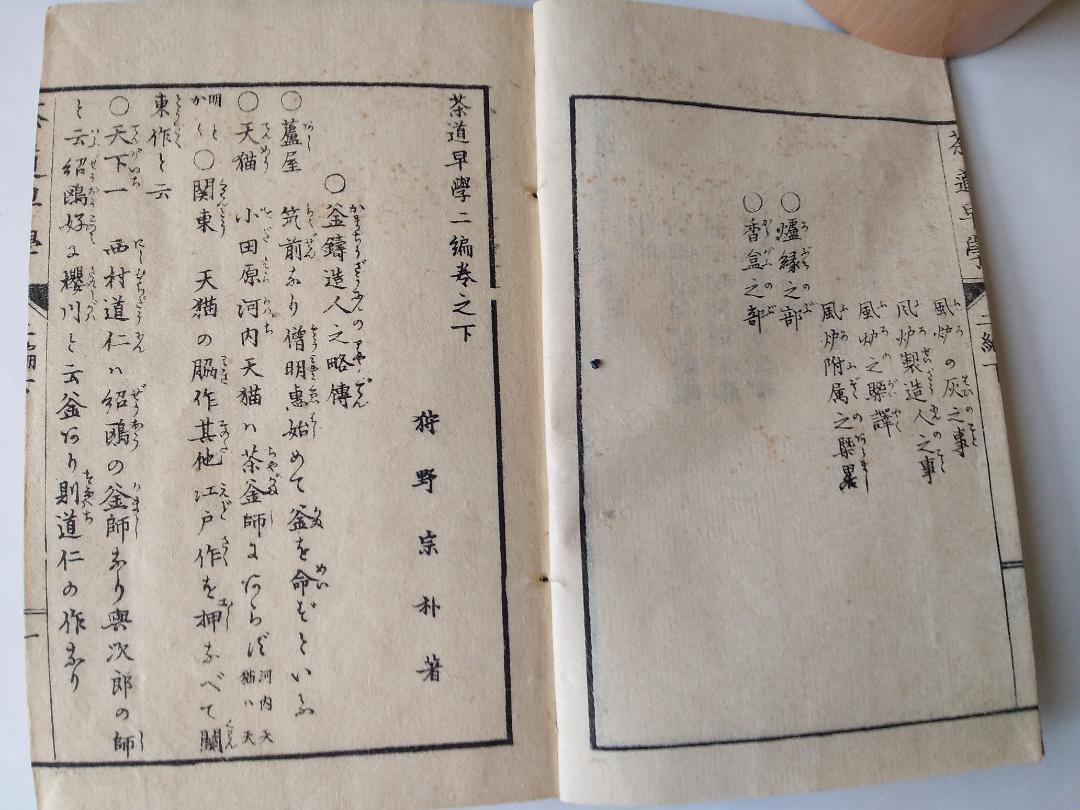 茶道早學 二編下
風炉の灰之事
風炉製造人之事
風炉之
風炉附属之
○爐縁之部
○香盒之部
茶道早學二編巻之下
狩野宗朴著
○釜鑄造人之略傳
○蘆屋 筑前なり僧明惠始めて釜を命ずといふ
○天猫 小田原河内天猫ハ茶釜師にあらず河内天猫ハ天
明とかく○関東 天猫の脇作其他江戸作を押なべて関
東作と云
○天下一 西村道仁ハ紹鴎の釜師なり與次郎の師
と云紹鴎好に櫻川と云釜あり則道仁の作なり